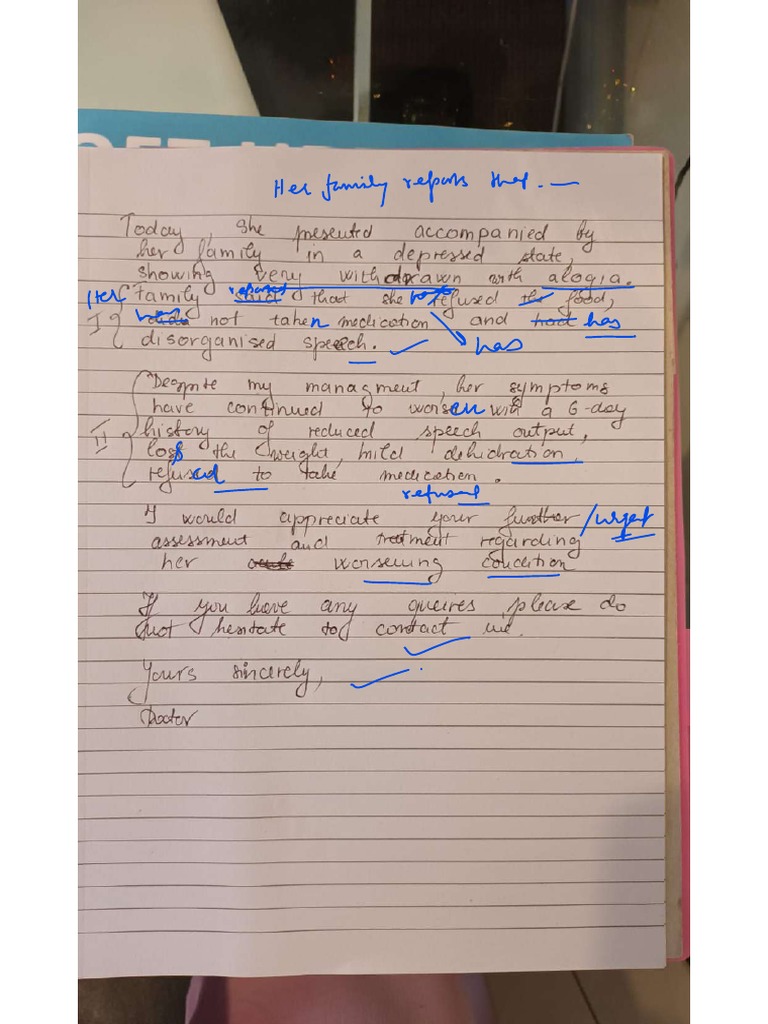 Her family reports that. —
Today, she presented accompanied by
her family in a depressed state,
showing very withdrawn with alogia.
Her family said reported that she refused the food,
I not taken medication and had has
has
disorganised speech.
Despite my managment, her symptoms
have continued to worsen with a 6-day
II history of reduced speech output,
loss the weight, mild dehidration,
refused to take medication.
refusal
I would appreciate your further / urgent
assessment and treatment regarding
her worsening condition
If you have any queires, please do
not hesitate to contact me.
Yours sincerely,
Doctor